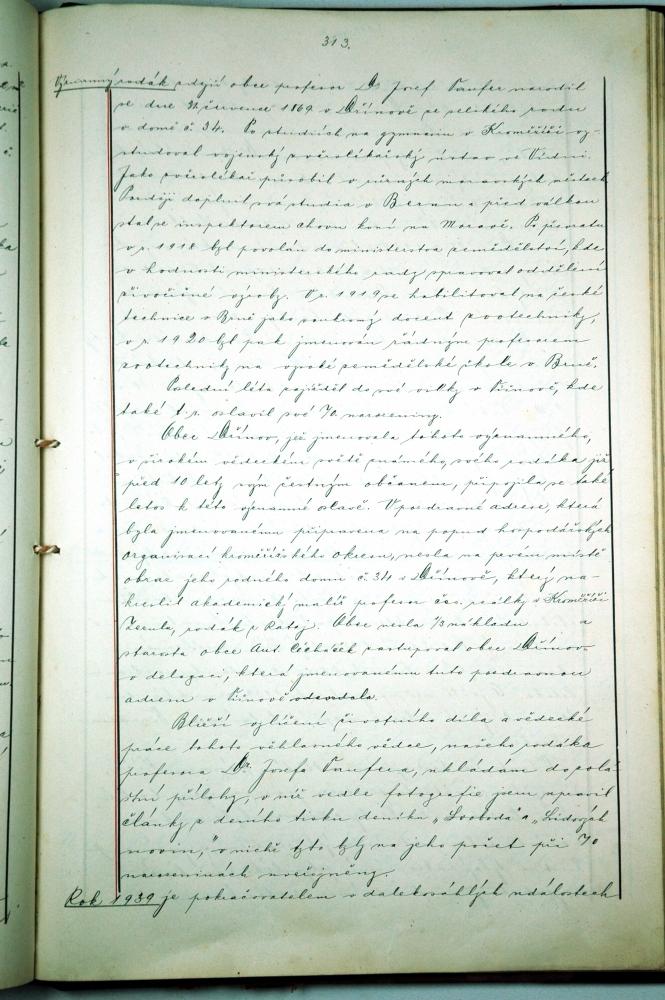 313.
Významný rodák zdejší obce profesor Dr Josef Taufer narodil
se dne 31. července 1869 v Dřínově ze selského rodu
v domě č. 34. Po studiích na gymnasiu v Kroměříži vy-
studoval vojenský zvěrolékařský ústav ve Vídni.
Jako zvěrolékař působil v různých moravských městech
Později doplnil svá studia v Bernu a před válkou
stal se inspektorem chovu koní na Moravě. Po převratu
v r. 1918 byl povolán do ministerstva zemědělství, kde
v hodnosti ministerského rady spravoval oddělení
živočišné výroby. V r. 1919 se habilitoval na české
technice v Brně jako soukromý docent zootechniky,
v r. 1920 byl pak jmenován řádným profesorem
zootechniky na vysoké zemědělské škole v Brně.
Poslední léta zajížděl do své vilky v Tišnově, kde
také t. r. oslavil své 70 narozeniny.
Obec Dřínov, jež jmenovala tohoto významného,
v širokém vědeckém světě známého, svého rodáka již
před 10 lety svým čestným občanem, připojila se také
letos k této významné oslavě. V pozdravné adrese, která
byla jmenovanému připravena na popud hospodářských
organisací kroměřížského okresu, nesla na prvém místě
obraz jeho rodného domu č. 34 v Dřínově, který na-
kreslil akademický malíř profesor čes. reálky v Kroměříži
Zezula, rodák z Rataj. Obec nesla 1/3 nákladu a
starosta obce Ant. Cecháček zastupoval obec Dřínov
v delegaci, která jmenovanému tuto pozdravnou
adresu v Tišnově odevzdala.
Bližší vylíčení životního díla a vědecké
práce tohoto věhlasného vědce, našeho rodáka
profesora Dr. Josefa Taufera, ukládám do zvlá-
štní přílohy, v níž vedle fotografie jsem upravil
články z denního tisku deníku „Svoboda" a „Lidových
novin," v nichž tyto byly na jeho počet při 70
narozeninách uveřejněny.
Rok 1939 je pokračovatelem v dalekosáhlých událostech